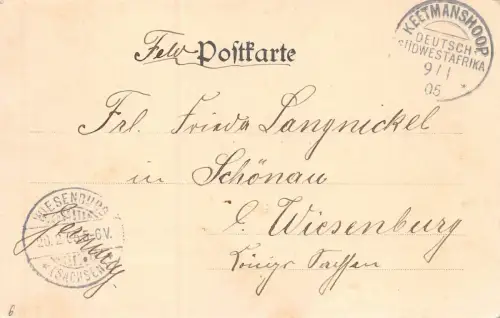 Feld Postkarte
KEETMANSHOOP
DEUTSCH-
SÜDWESTAFRIKA
9/1
05
Frl. Frieda Langnickel
in Schönau
b. Wiesenburg
Königr. Sachsen
WIESENBURG
20. 2. 05 6-7V.
(SACHSEN)
Germany
6